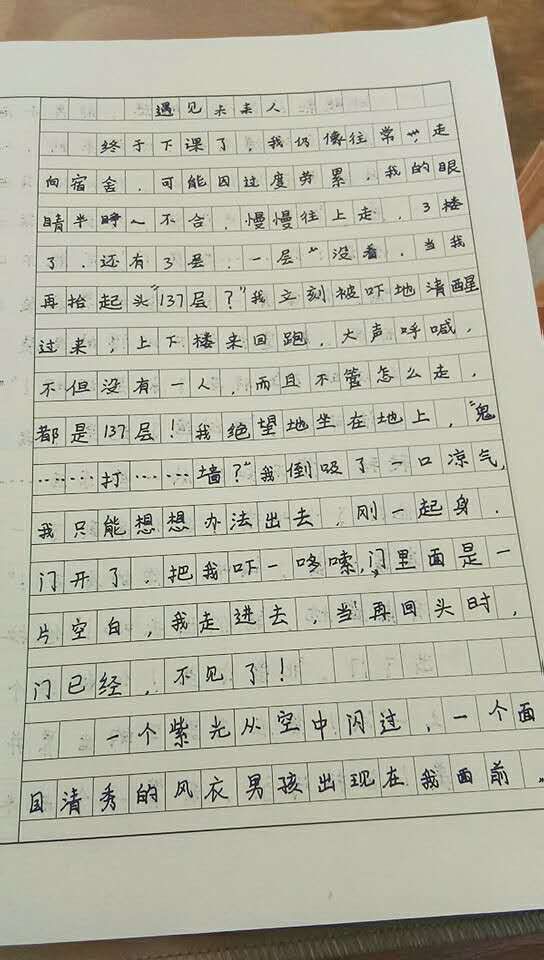 遇见未来人
终于下课了，我仍像往常一走
向宿舍，可能因过度劳累，我的眼
睛半睁~不合，慢慢往上走，3楼
了，还有3层，一层"没看，当我
再抬起头"137层？"我立刻被吓地清醒
过来，上下楼来回跑，大声呼喊，
不但没有一人，而且不管怎么走，
都是137层！我绝望地坐在地上，"鬼
……打……墙？"我倒吸了一口凉气，
我只能想想办法出去，刚一起身，
门开了，把我吓一哆嗦，门里面是一
片空白，我走进去，当再回头时，
门已经，不见了！
一个紫光从空中闪过，一个面
目清秀的风衣男孩出现在我面前。